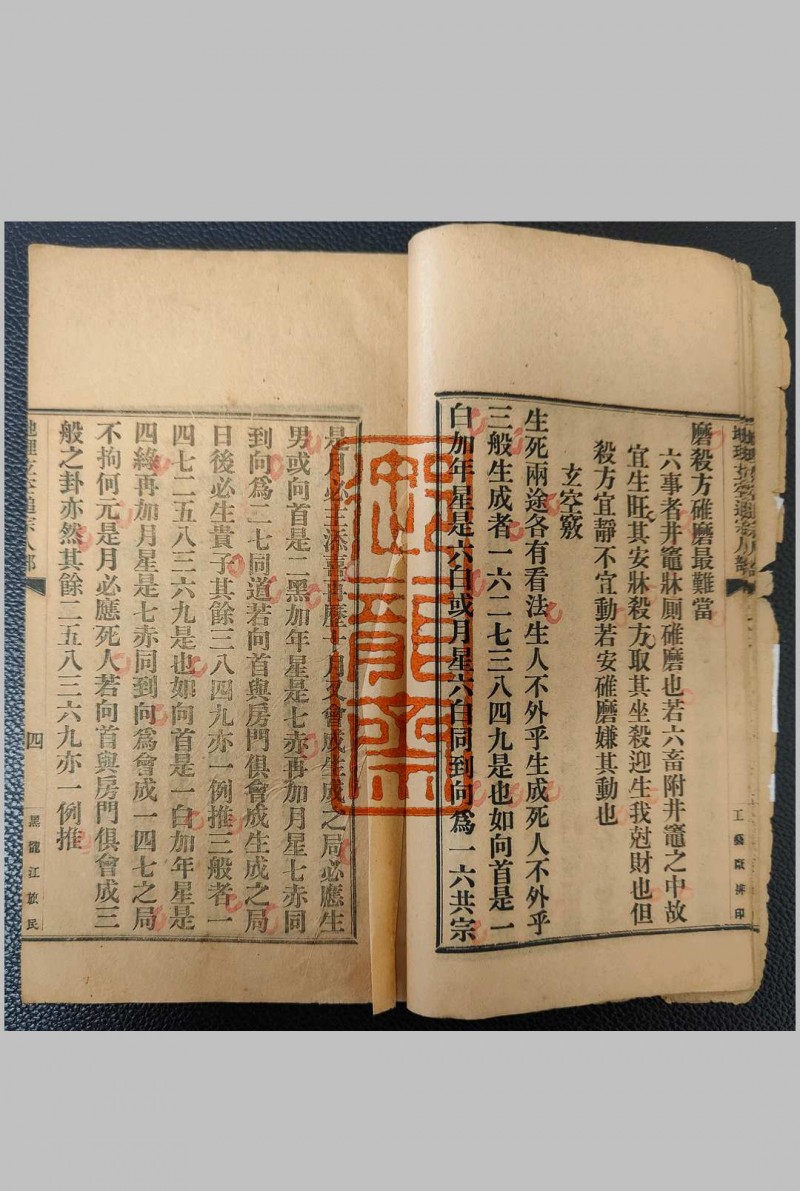 磨殺方碓磨最難當
六事者井竈牀厠碓磨也若六畜附井竈之中故
宜生旺其安牀殺方取其坐殺迎生我尅財也但
殺方宜靜不宜動若安碓磨嫌其動也
玄空竅
生死兩途各有看法生人不外乎生成死人不外乎
三般生成者一六二七三八四九是也如向首是一
白加年星是六白或月星六白同到向爲一六共宗
工藝廠排印
是月必主添喜再歷十月又會成生成之局必應生
男或向首是二黑加年星是七赤再加月星七赤同
到向爲二七同道若向首與房門俱會成生成之局
日後必生貴子其餘三八四九亦一例推三般者一
四七二五八三六九是也如向首是一白加年星是
四綠再加月星是七赤同到向爲會成一四七之局
不拘何元是月必應死人若向首與房門俱會成三
般之卦亦然其餘二五八三六九亦一例推
地理玄空通宗八部
四
黑龍江旗民